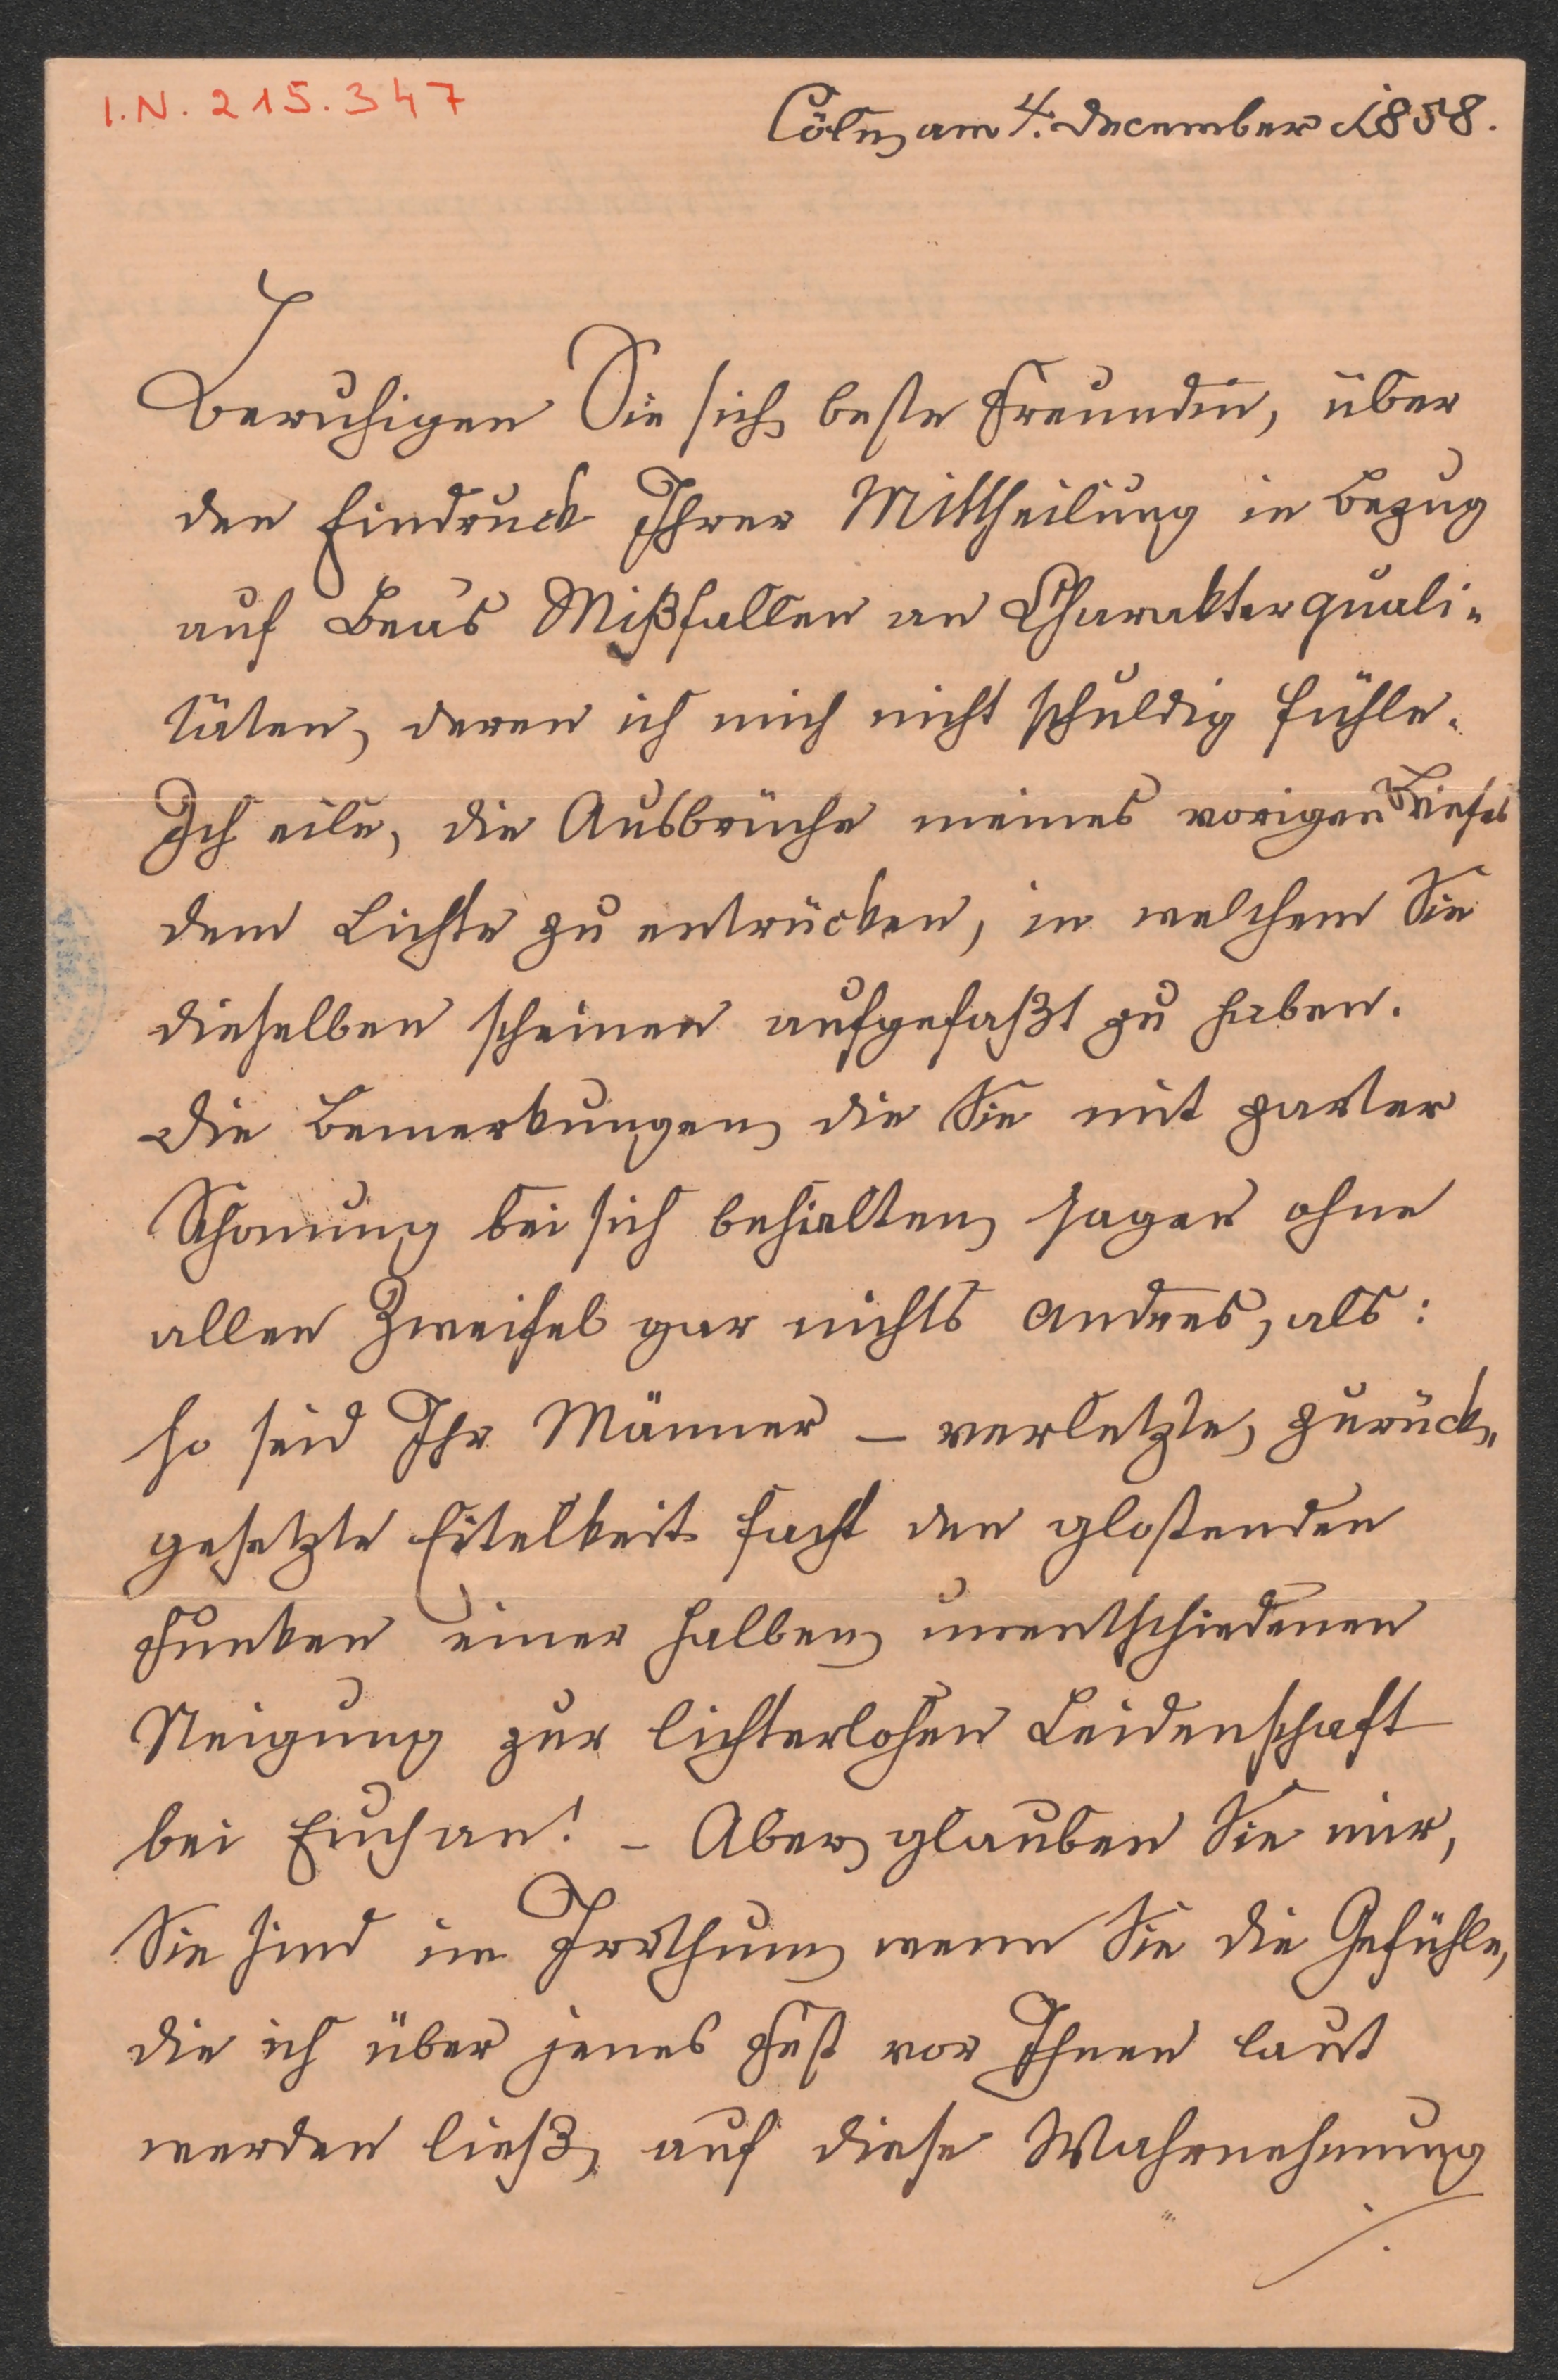 I.N. 215.347
Cöln, am 4. December 1858.
Beruhigen Sie sich, beste Freundin, über
den Eindruck Ihrer Mittheilung in Bezug
auf Bea's Mißfallen an Charakterquali-
täten, deren ich mich nicht schuldig fühle.
Ich eile, die Ausbrüche meines vorigen Briefes
dem Lichte zu entrücken, in welchem Sie
dieselben scheinen aufgefaßt zu haben.
Die Bemerkungen, die Sie mit zarter
Schonung bei sich behielten, sagen ohne
allen Zweifel gar nichts Andres, als:
so seid Ihr Männer – verletzte, zurück-
gesetzte Eitelkeit facht den glostenden
Funken einer halben, unentschiedenen
Neigung zur lichterlohen Leidenschaft
bei Euch an! – Aber, glauben Sie mir,
Sie sind im Irrthum, wenn Sie die Gefühle,
die ich über jenes Fest vor Ihnen laut
werden ließ, auf diese Wahrnehmung
./.